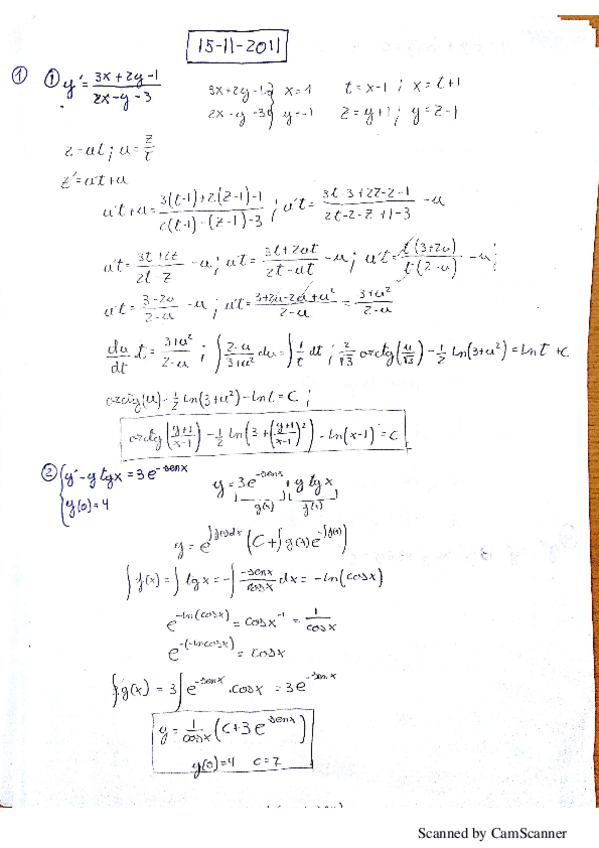 15-11-2011
① ① y' = (3x+2y-1)/(2x-y-3)    3x+2y-1 } x=1    t=x-1 ; x=t+1
2x-y-3 } y=-1    z=y+1 ; y=z-1
z=ut ; u=z/t
z'=u't+u
u't+u = (3(t-1)+2(z-1)-1)/(2(t-1)-(z-1)-3) ; u't = (3t-3+2z-2-1)/(2t-2-z+1-3) - u
u't = (3t+2z)/(2t z) - u ; u't = (3t+2ut)/(2t-ut) - u ; u't = t(3+2u)/t(2-u) - u ;
u't = (3-2u)/(2-u) - u ; u't = (3+2u-2u+u²)/(2-u) = (3+u²)/(2-u)
du/dt t = (3+u²)/(2-u) ; ∫(2-u)/(3+u²) du = ∫1/t dt ; 2/√3 arctg(u/√3) - 1/2 ln(3+u²) = ln t + C
arctg(u) - 1/2 ln(3+u²) - ln t = C ;
arctg((y+1)/(x-1)) - 1/2 ln(3+((y+1)/(x-1))²) - ln(x-1) = C
② { y'-y tgx = 3e^-senx    y = 3e^-senx + y tgx
y(0)=4    g(x)    f(x)
y = e^∫f(x)dx (C+∫g(x)e^-∫f(x))
∫f(x) = ∫tgx = -∫-senx/cosx dx = -ln(cosx)
e^-ln(cosx) = cosx^-1 = 1/cosx
e^-(-lncosx) = cosx
∫g(x) = 3∫e^-senx · cosx = 3e^-senx
y = 1/cosx (C+3e^senx)
y(0)=4    C=7
Scanned by CamScanner